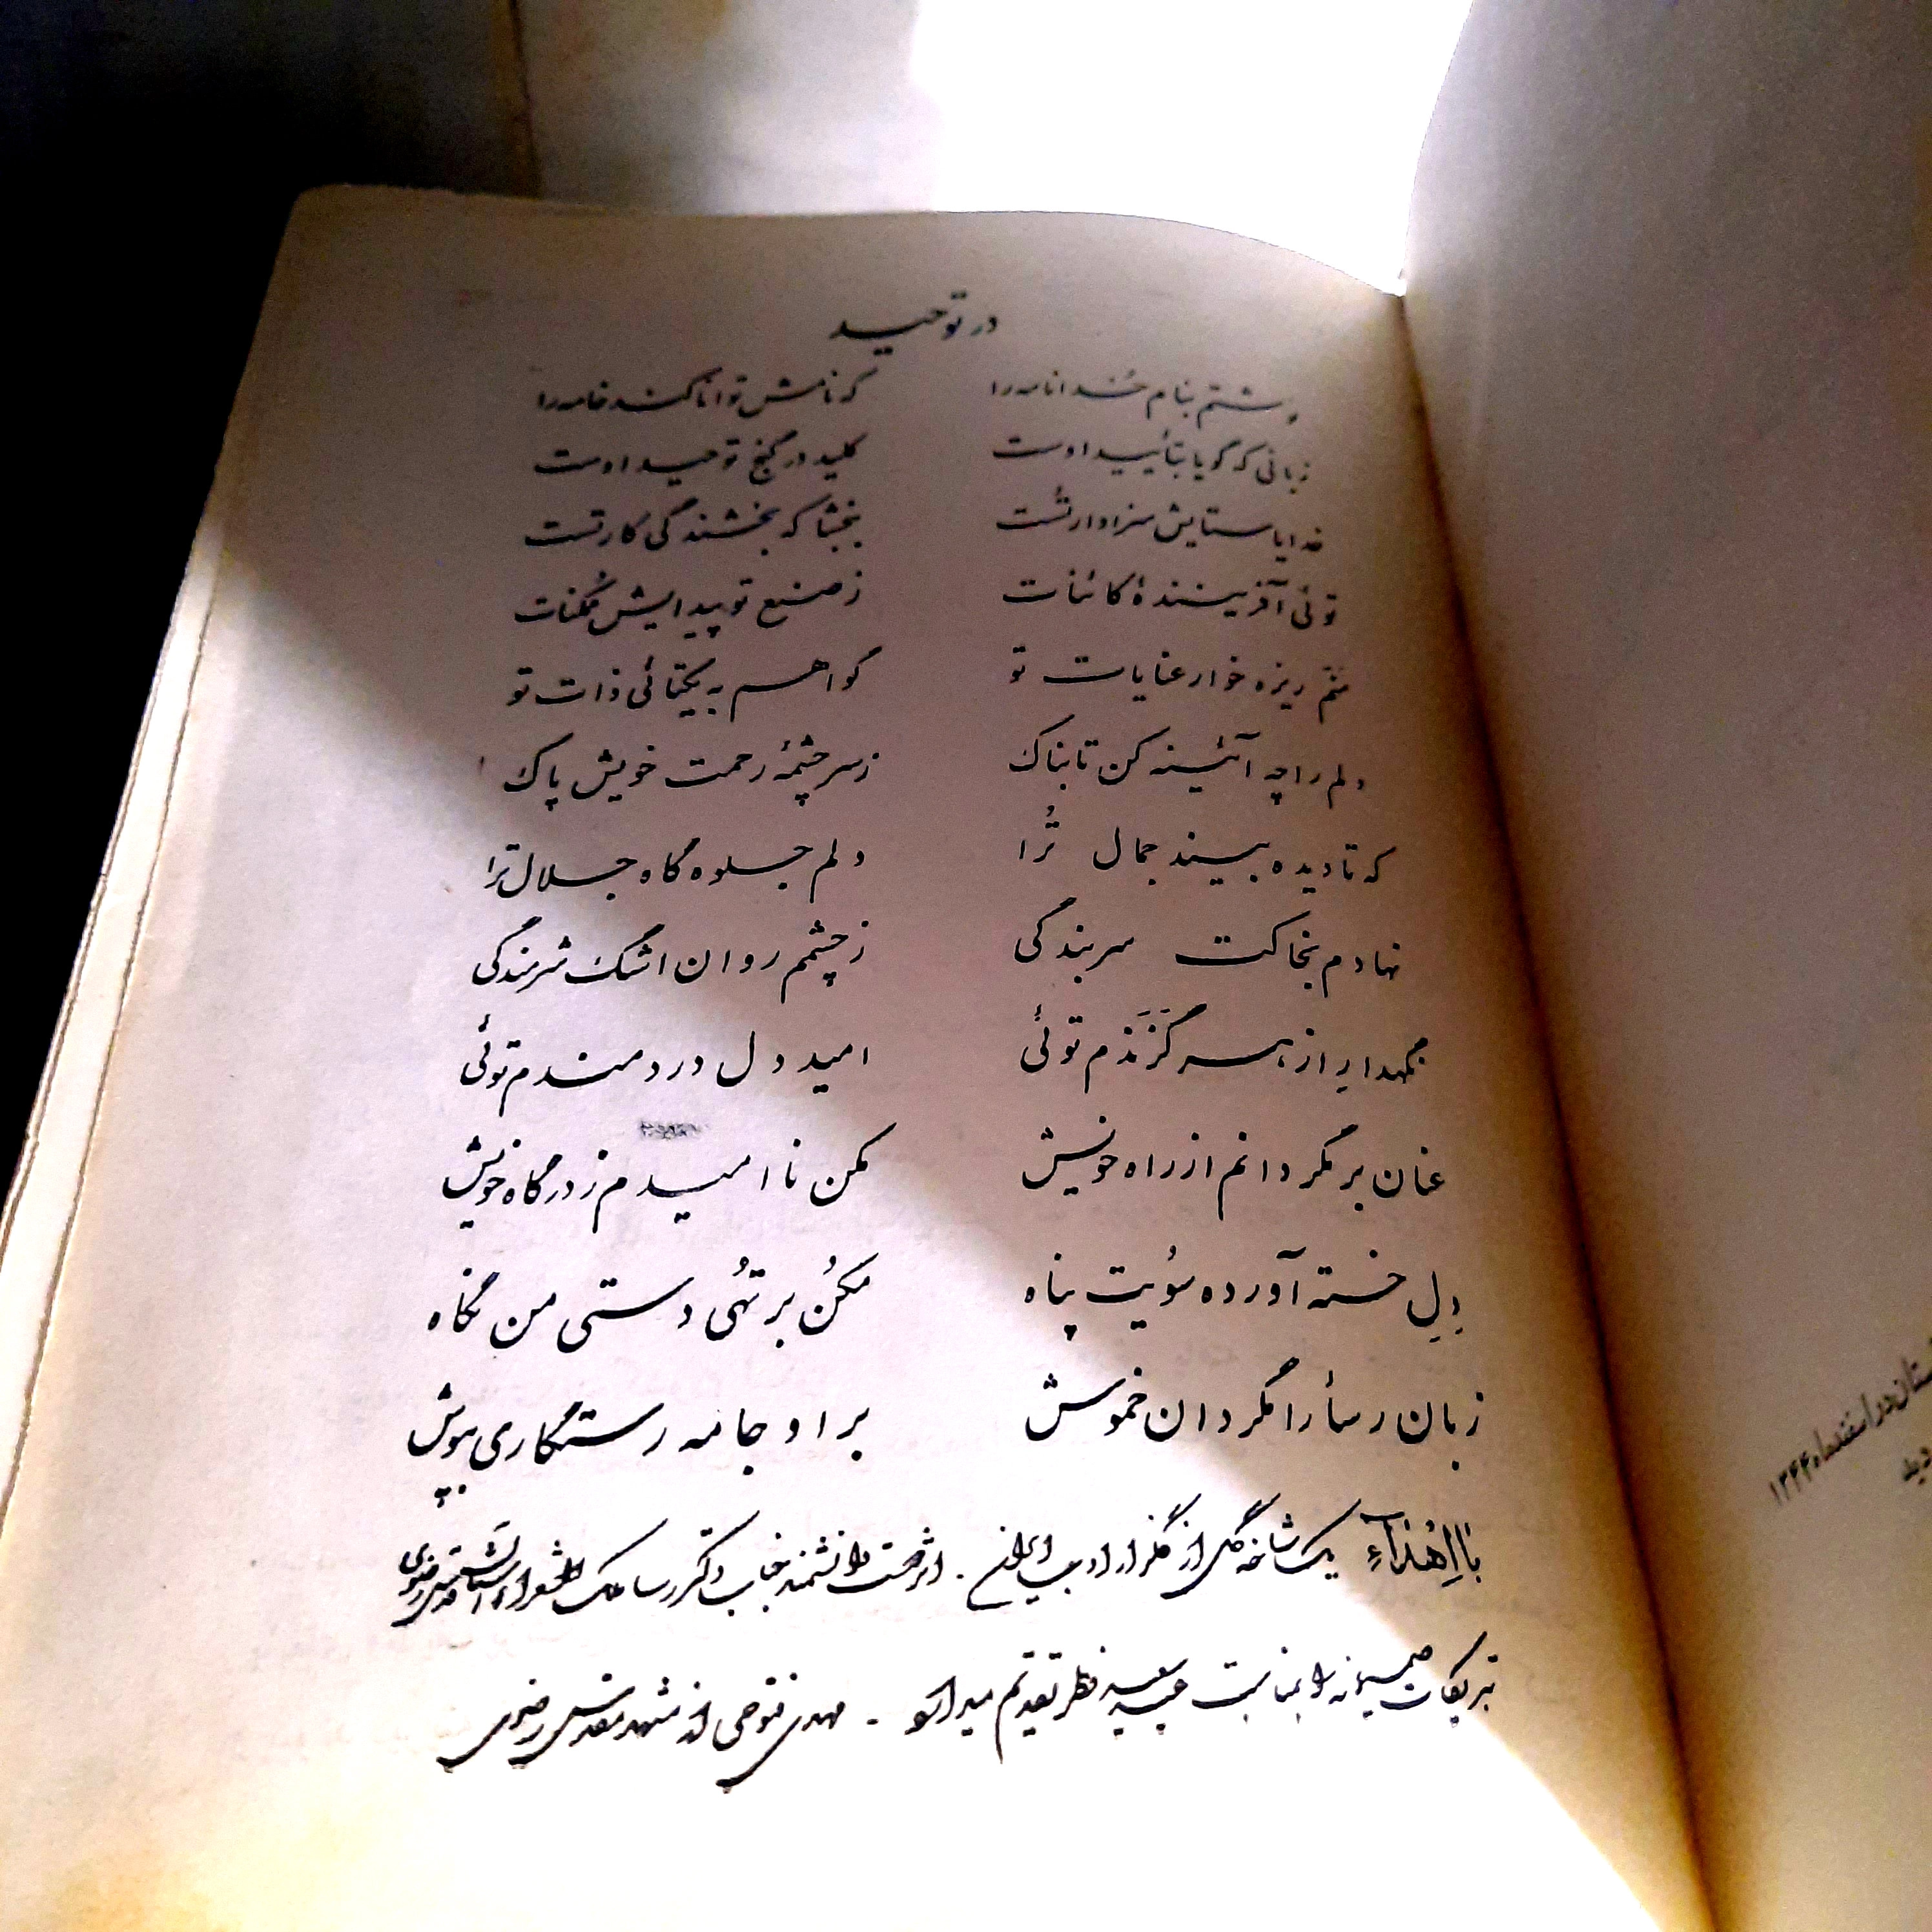 در توحید
نوشتم بنام خدا نامه را که نامش توانا کند خامه را
زبانی که گویا بتأیید اوست کلید در گنج توحید اوست
خدایا ستایش سزاوار تُست ببخشا که بخشندگی کار تست
توئی آفرینندهٔ کائنات ز صنع تو پیدایش ممکنات
منم ریزه خوار عنایات تو گواهم به یکتائی ذات تو
دلم را چه آئینه کن تابناک ز سرچشمهٔ رحمت خویش پاک
که تا دیده بیند جمال تُرا دلم جلوه گاه جلال ترا
نهادم بخاکت سر بندگی ز چشمم روان اشک شرمندگی
نگهدار از هر گزندم توئی امید دل دردمندم توئی
عنان بر نگردانم از راه خویش مکن ناامیدم ز درگاه خویش
دلِ خسته آورده سُویت پناه مکُن بر تهُی دستی من نگاه
زبان رسأ را مگردان خموش بر او جامه رستگاری بپوش
با اِهْداءِ یک شاخه گل از گلزار ادب ایران . اثر دانشمند جناب دکتر رسا ملک الشعراء آستان قدس رضوی
تبریکات صمیمانه را بمناسبت عید سعید فطر تقدیم میدارد - مهدی فتوحی از مشهد مقدس رضوی
اسفندماه ۱۳۴۴